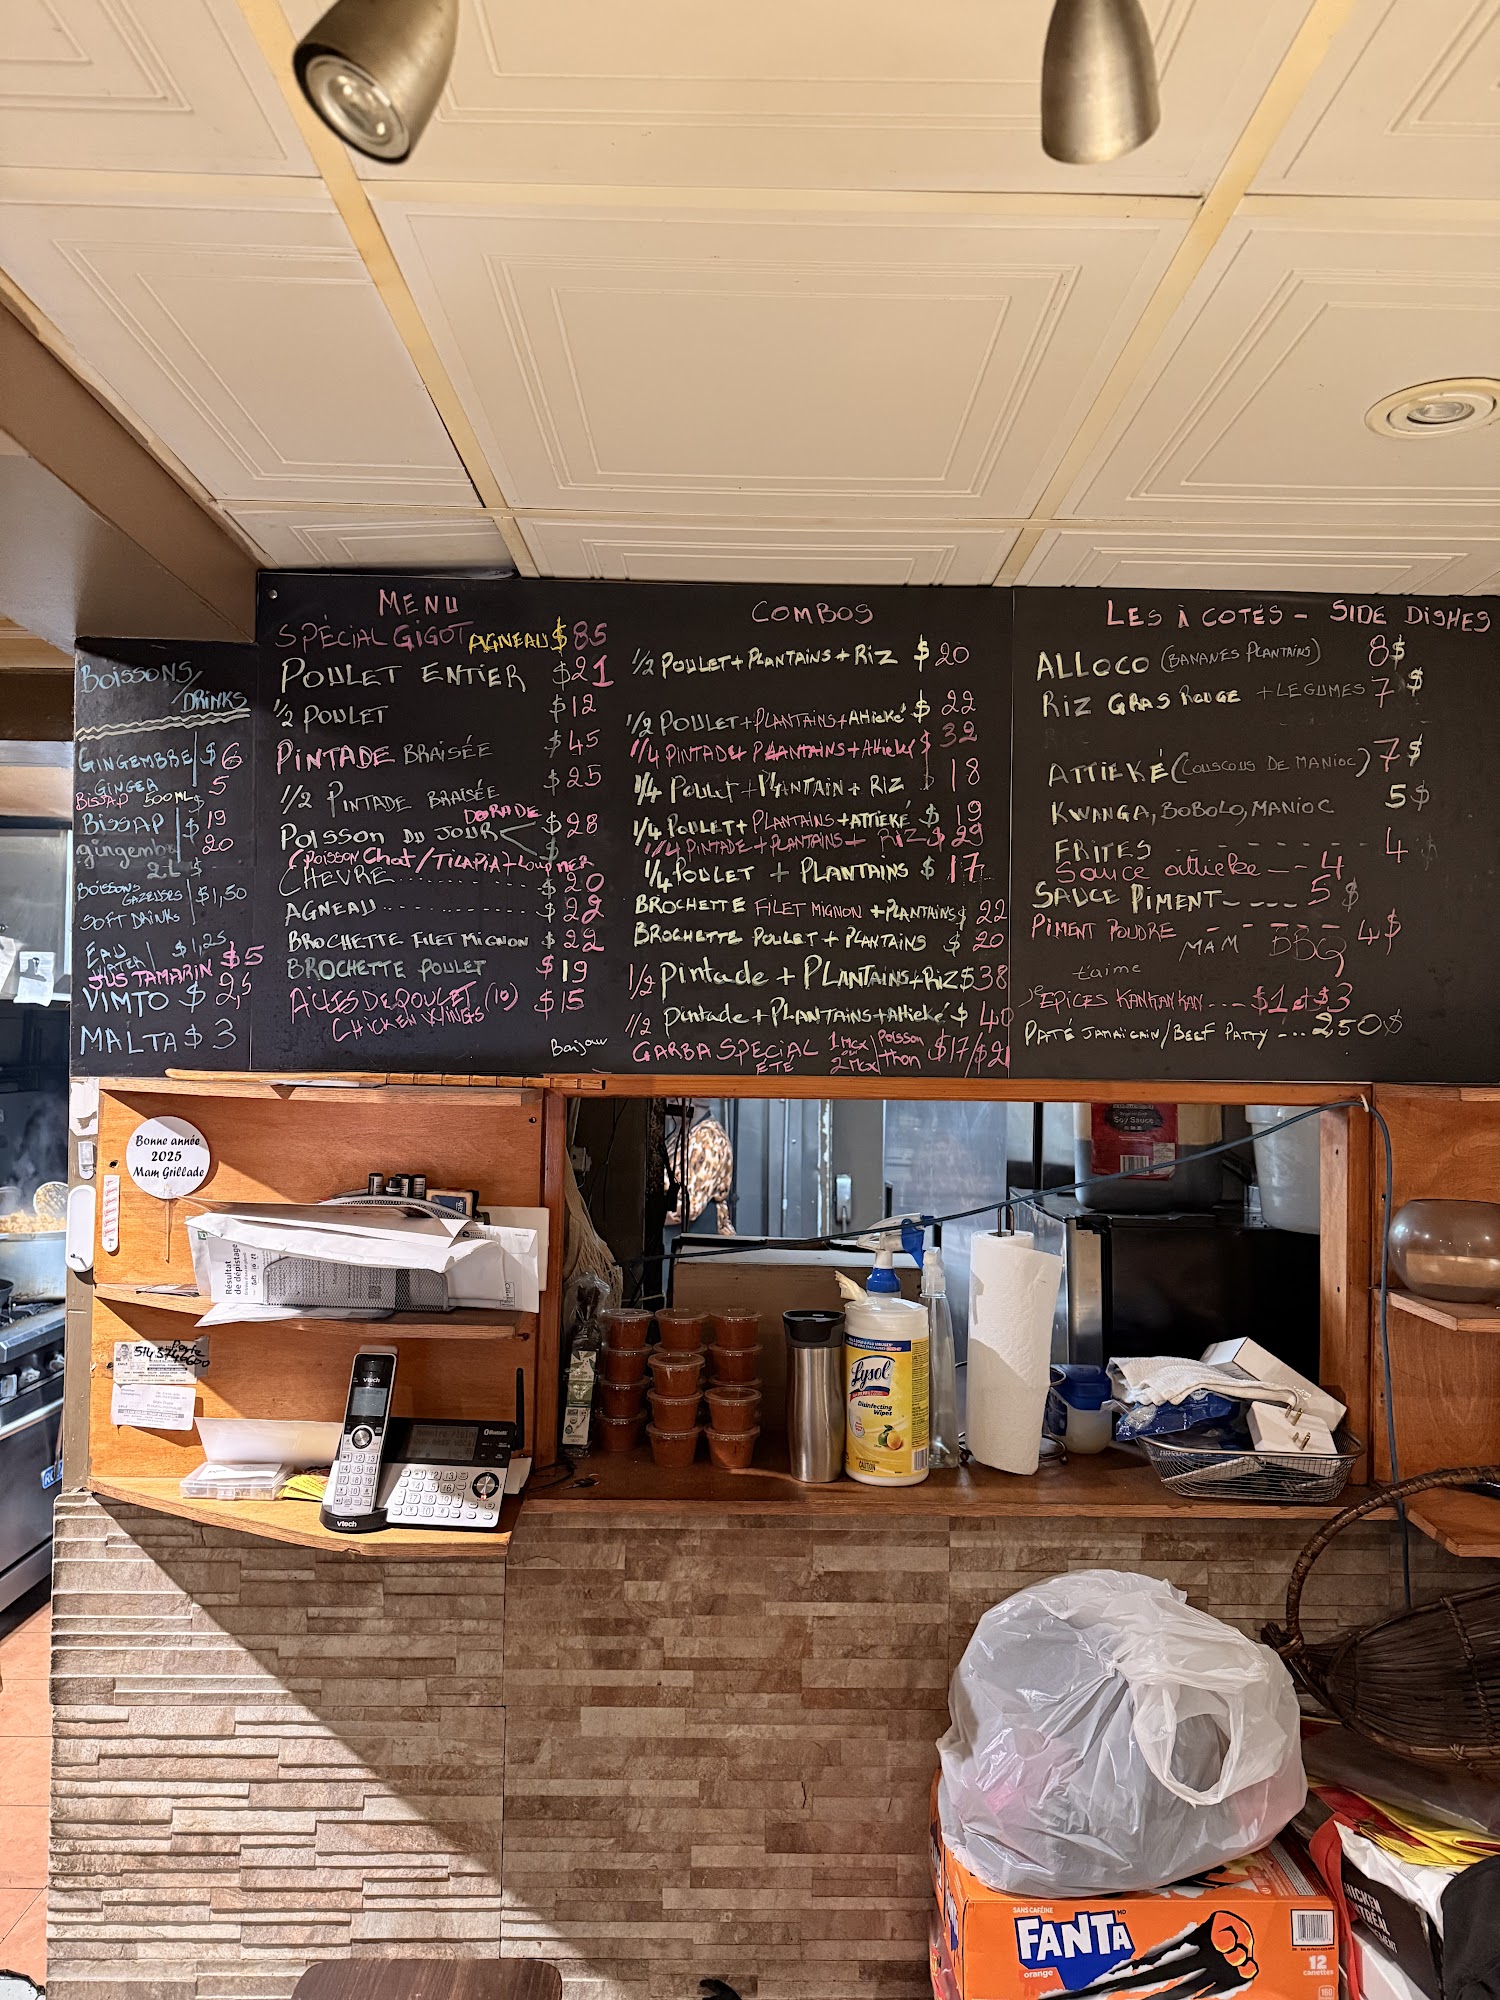 BOISSONS/
DRINKS
GINGEMBRE $ 6
GINGER
BISSAP 500 ML $ 5
BISSAP $ 19
gingembr 20
2L $
BOISSONS
GAZEUSES $1,50
SOFT DRINKS
EAU $1,25
WATER
JUS TAMARIN $5
VIMTO $ 2,5
MALTA $ 3
MENU
SPÉCIAL GIGOT AGNEAU $ 85
POULET ENTIER $21
1/2 POULET $12
PINTADE BRAISÉE $45
1/2 PINTADE BRAISÉE $25
DORADE
POISSON DU JOUR $28
(POISSON Chat/TILAPIA+Loup MER
CHEVRE ............ $20
AGNEAU ............ $22
BROCHETTE FILET MIGNON $22
BROCHETTE POULET $19
AILES DE POULET (10) $15
CHICKEN WINGS
Bonjour
COMBOS
1/2 POULET + PLANTAINS + RIZ $ 20
1/2 POULET + PLANTAINS + Attieké $ 22
1/4 PINTADE + PLANTAINS + Attieké $ 32
1/4 POULET + PLANTAIN + RIZ $ 18
1/4 POULET + PLANTAINS + ATTIEKÉ $ 19
1/4 PINTADE + PLANTAINS + RIZ $ 29
1/4 POULET + PLANTAINS $ 17
BROCHETTE FILET MIGNON + PLANTAINS $ 22
BROCHETTE POULET + PLANTAINS $ 20
1/2 pintade + PLANTAINS + RIZ $38
1/2 pintade + PLANTAINS + Attieké $ 40
GARBA SPECIAL 1 mcx / Poisson $17/$21
ÉTÉ ou 2 mcx thon
LES À COTÉS - SIDE DISHES
ALLOCO (BANANES PLANTAINS) 8$
RIZ GRAS ROUGE + LEGUMES 7 $
ATTIEKÉ (COUSCOUS DE MANIOC) 7$
KWANGA, BOBOLO, MANIOC 5$
FRITES - - - - - - - 4 $
Sauce attieke - - 4
SAUCE PIMENT - - - - 5 $
PIMENT POUDRE - - - - 4$
MAM BBQ
je t'aime
EPICES KANKANKAN ... $1 et $3
PATÉ JAMAÏCAIN/BEEF PATTY ... 2,50$
Bonne année
2025
Mam Grillade
Résultat
de dépistage
Soy Sauce
vtech
vtech
Lysol
Disinfecting
Wipes
CAUTION
SANS CAFÉINE
FANTA MD
orange
12
canettes